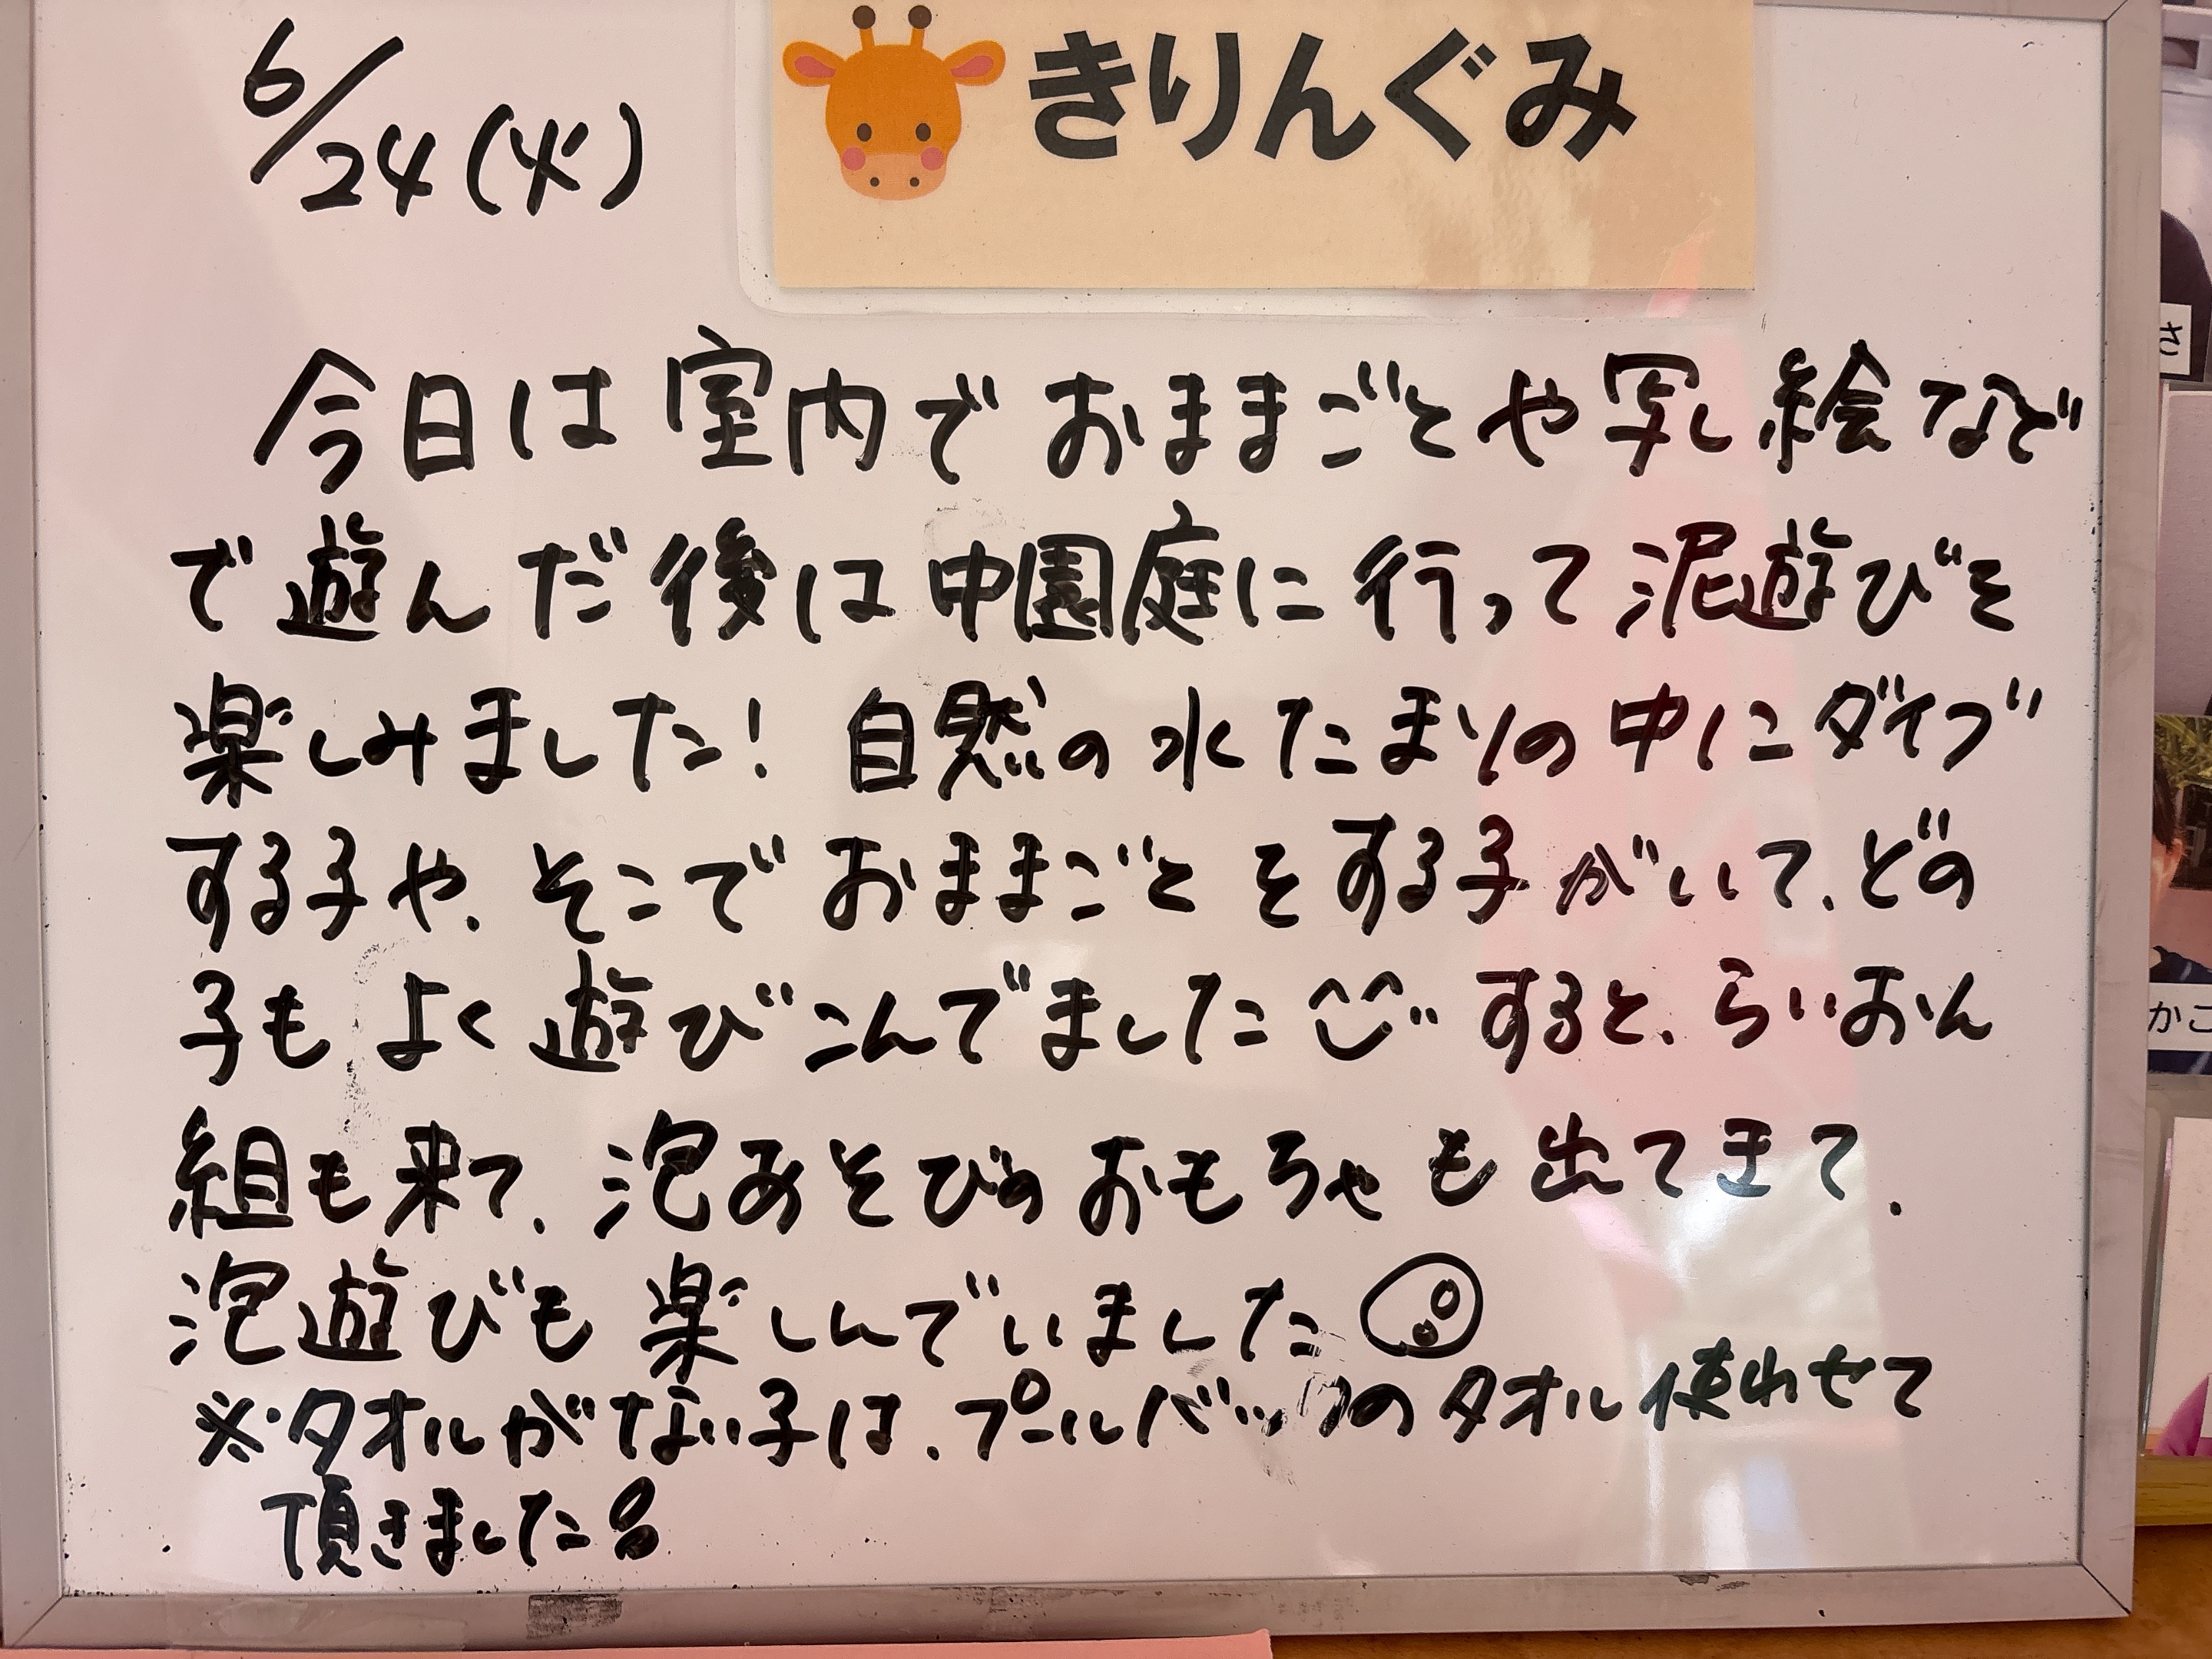 6/24(火)
きりんぐみ
今日は室内でおままごとや写し絵など
で遊んだ後は中園庭に行って泥遊びを
楽しみました! 自然の水たまりの中にダイブ
する子や、そこでおままごとをする子がいて、どの
子もよく遊びこんでました すると、らいおん
組も来て、泡あそびのおもちゃも出てきて、
泡遊びも楽しんでいました
※タオルがない子は、プールバックのタオル使わせて
頂きました
さ
かこ